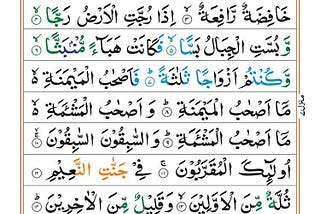 خَافِضَةٌ رَّافِعَةٌ ۙ﴿۳﴾ اِذَا رُجَّتِ الْاَرْضُ رَجًّا ۙ﴿۴﴾
وَّ بُسَّتِ الْجِبَالُ بَسًّا ۙ﴿۵﴾ فَكَانَتْ هَبَآءً مُّنْۢبَثًّا ۙ﴿۶﴾
وَّ كُنْتُمْ اَزْوَاجًا ثَلٰثَةً ؕ﴿۷﴾ فَاَصْحٰبُ الْمَيْمَنَةِ ۙ۬
مَاۤ اَصْحٰبُ الْمَيْمَنَةِ ؕ﴿۸﴾ وَ اَصْحٰبُ الْمَشْـَٔمَةِ ۙ۬
مَاۤ اَصْحٰبُ الْمَشْـَٔمَةِ ؕ﴿۹﴾ وَ السّٰبِقُوْنَ السّٰبِقُوْنَ ۚ﴿۱۰﴾
اُولٰٓئِكَ الْمُقَرَّبُوْنَ ۚ﴿۱۱﴾ فِيْ جَنّٰتِ النَّعِيْمِ ﴿۱۲﴾
ثُلَّةٌ مِّنَ الْاَوَّلِيْنَ ۙ﴿۱۳﴾ وَ قَلِيْلٌ مِّنَ الْاٰخِرِيْنَ ؕ﴿۱۴﴾